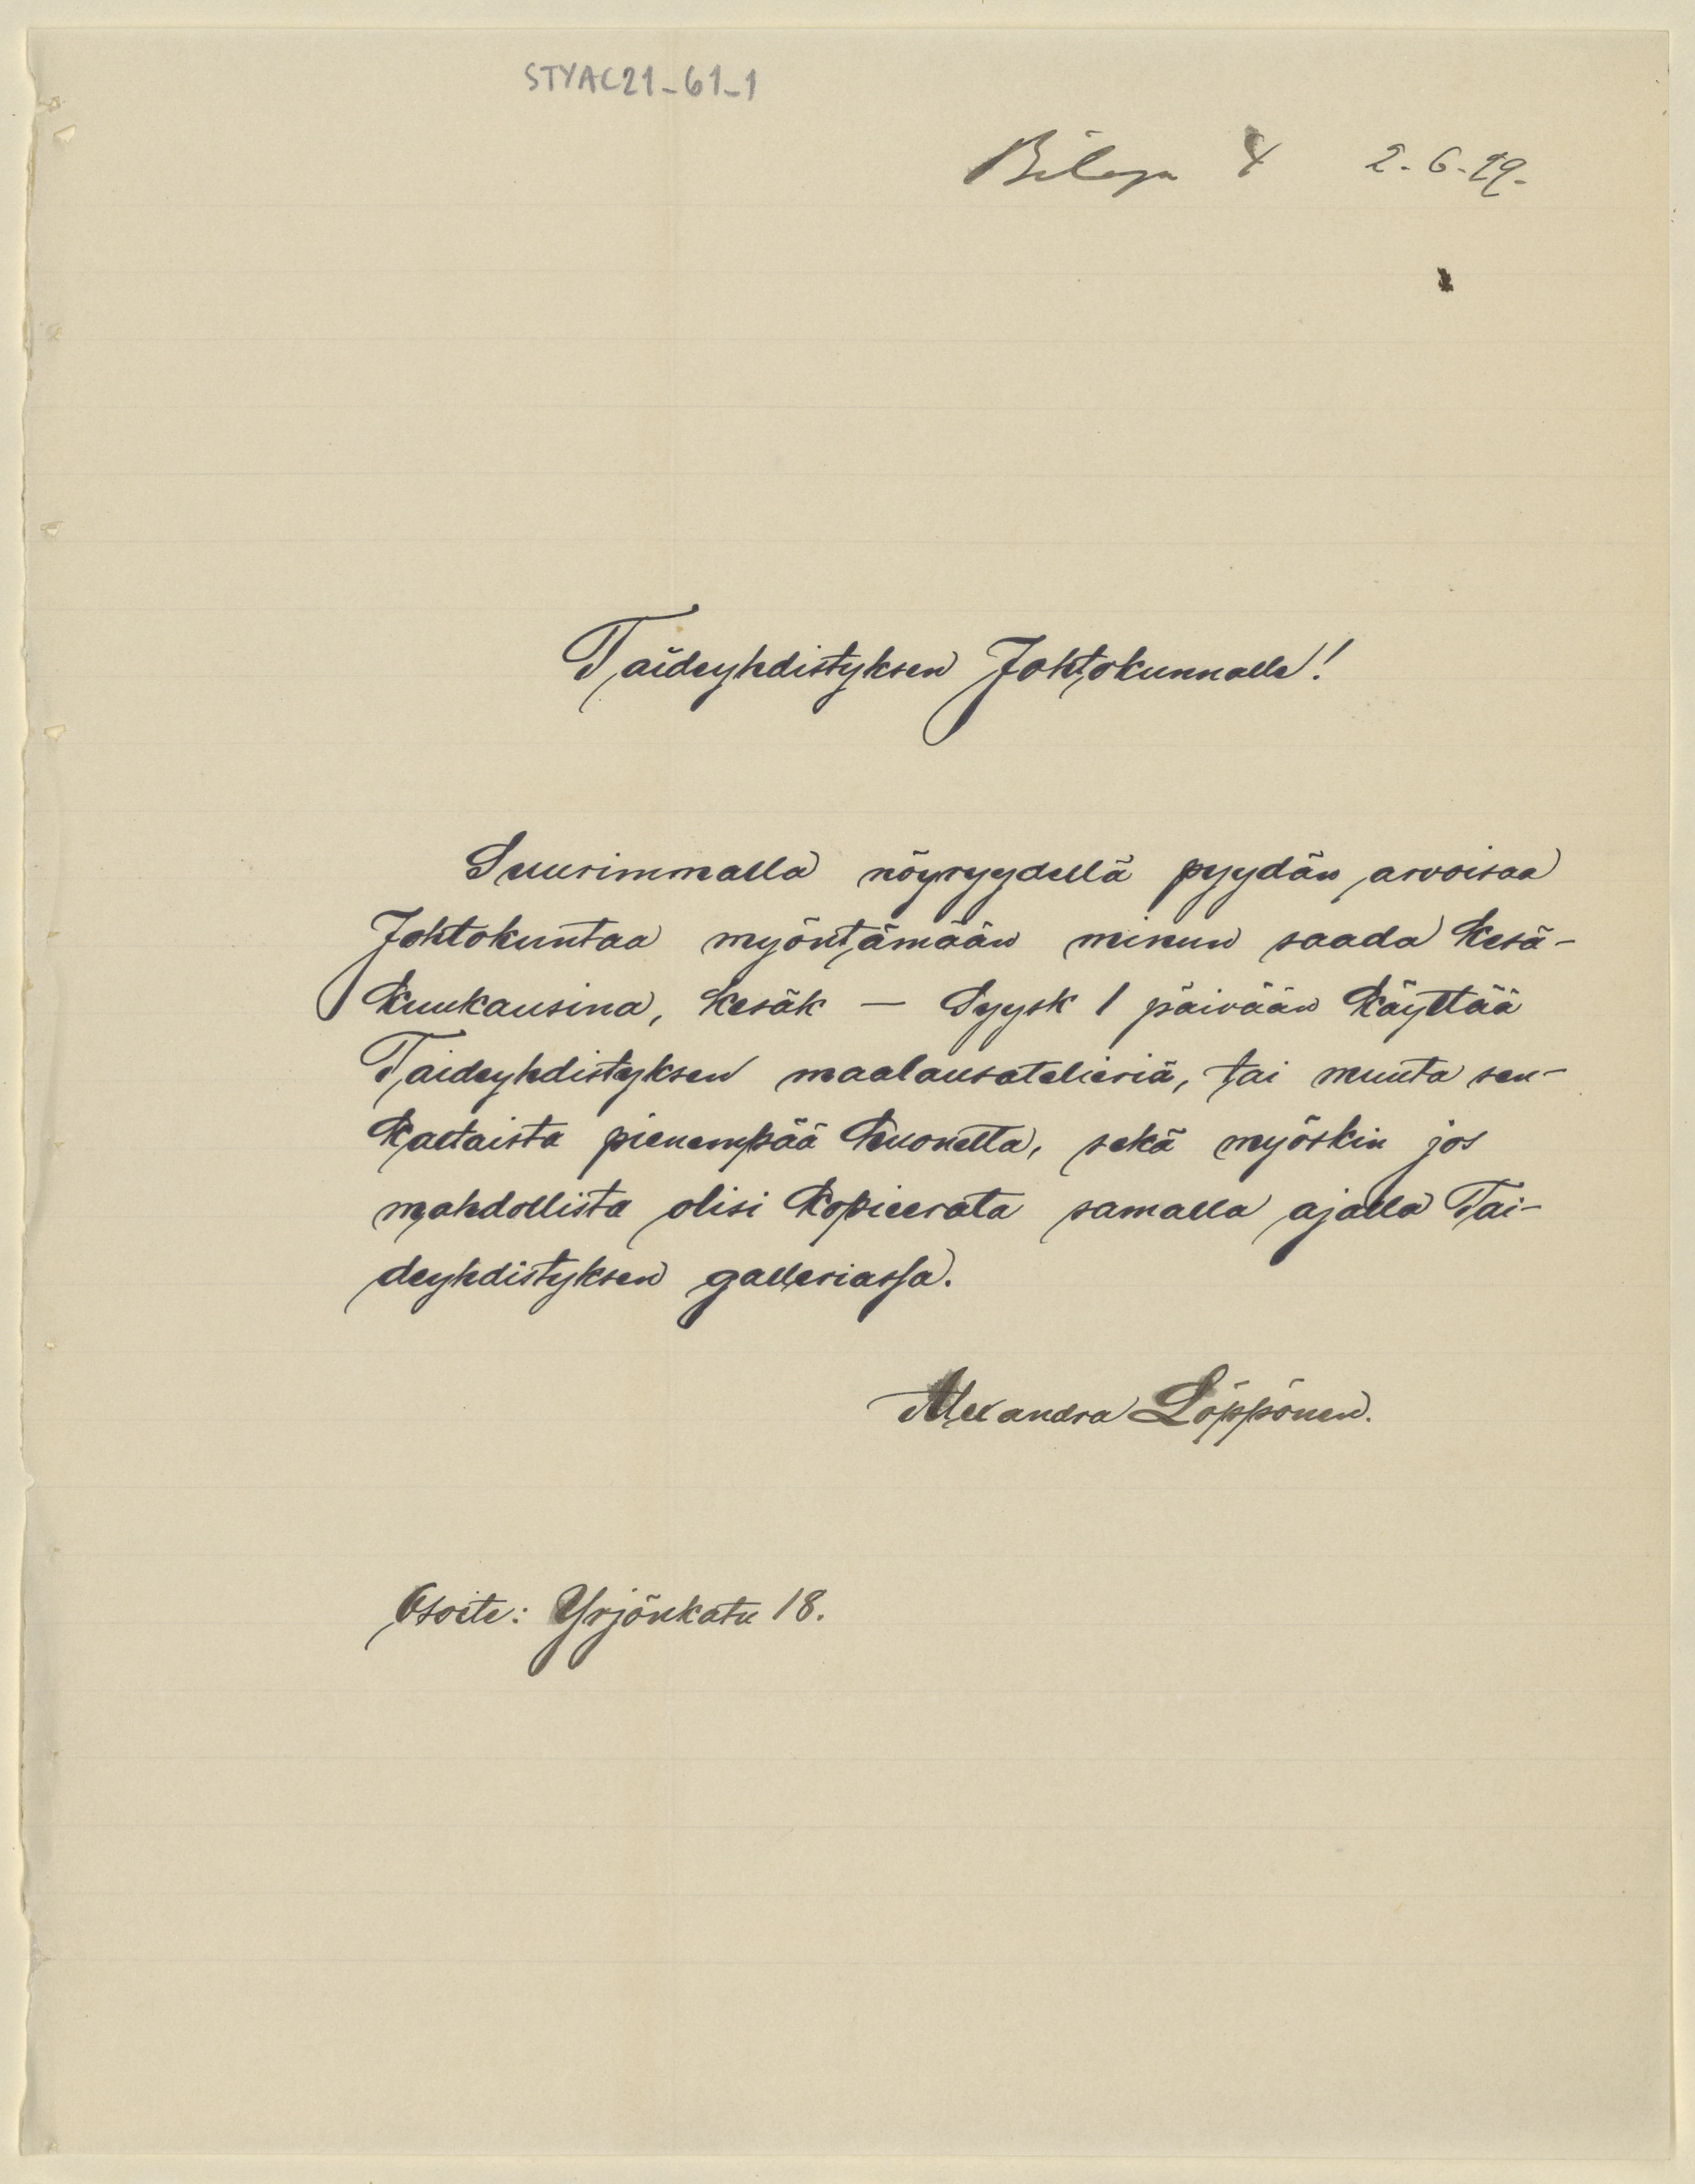 STYAC21_61_1
Bilaga 4 2-6-19-
Taideyhdistyksen Johtokunnalle!
Suurimmalla nöyryydellä pyydän arvoisaa
Johtokuntaa myöntämään minun saada kesä-
kuukausina, kesäk — Syysk 1 päivään käyttää
Taideyhdistyksen maalausatelieriä, tai muuta sen-
kaltaista pienempää huonetta, sekä myöskin jos
mahdollista olisi kopieerata samalla ajalla Tai-
deyhdistyksen galleriassa.
Alexandra Löppönen.
Osoite: Yrjönkatu 18.